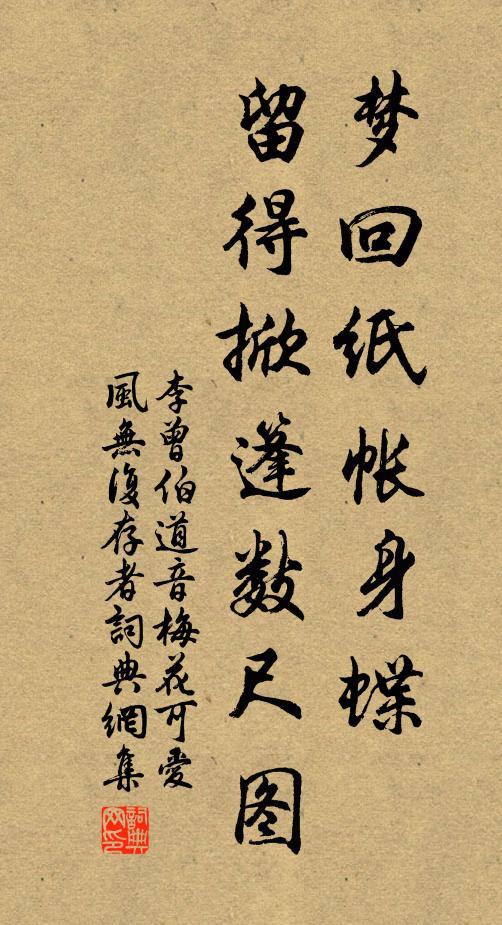 梦回纸帐身蝶
留得掀篷数尺图
李曾伯道音梅花可爱
風無復存者詞典網集
詞典网印